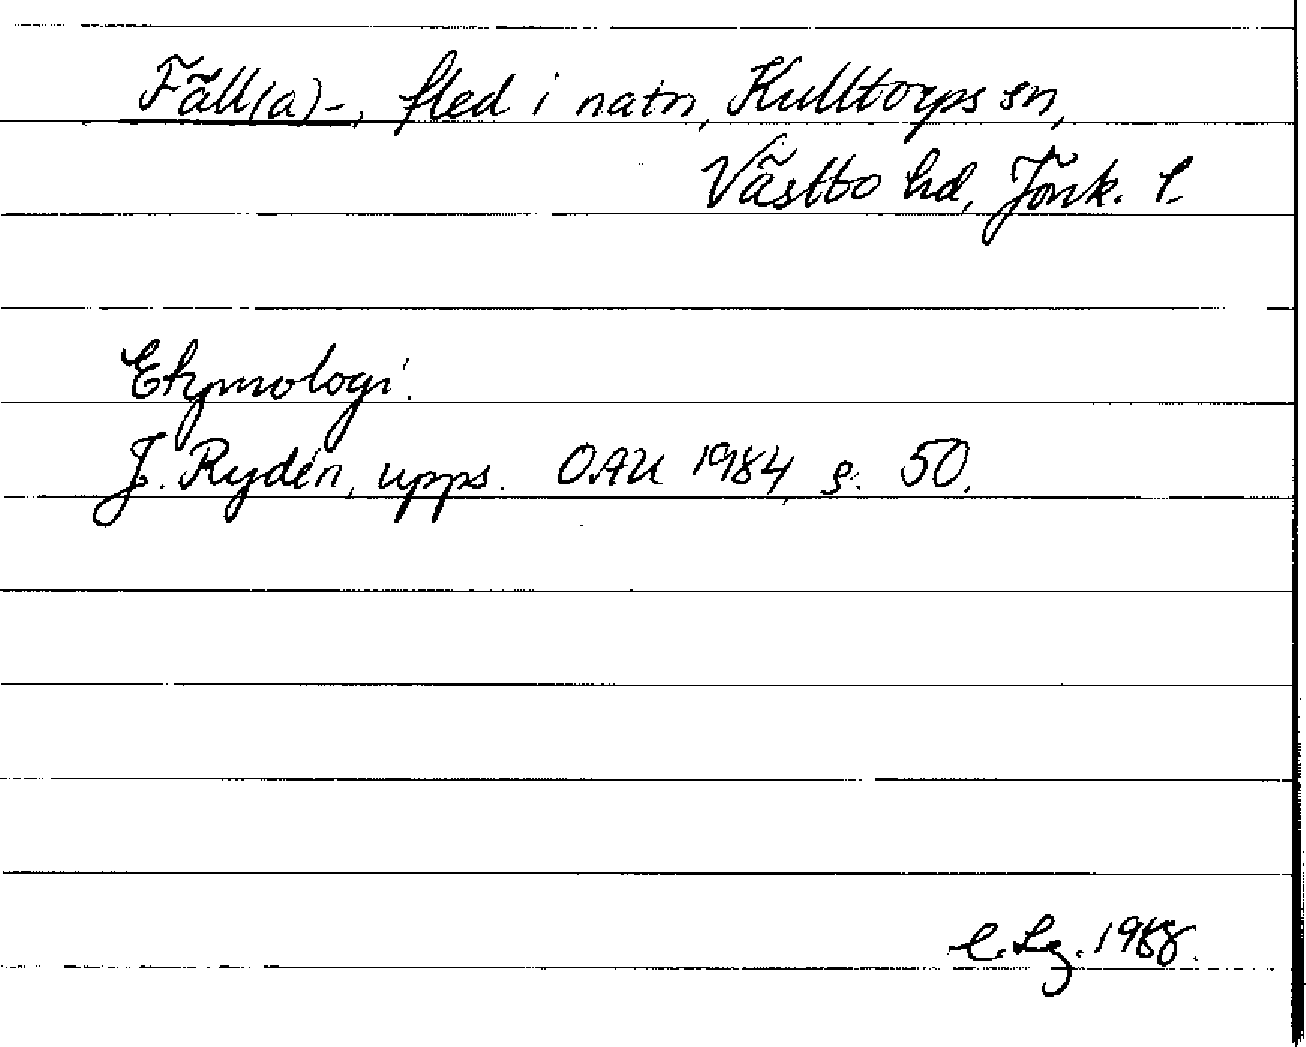 Fäll(a)-, fled i natn, Kulltorps sn,
Västbo hd, Jönk. l.
Etymologi.
J. Rydén, upps. OAU 1984, s. 50.
1988.